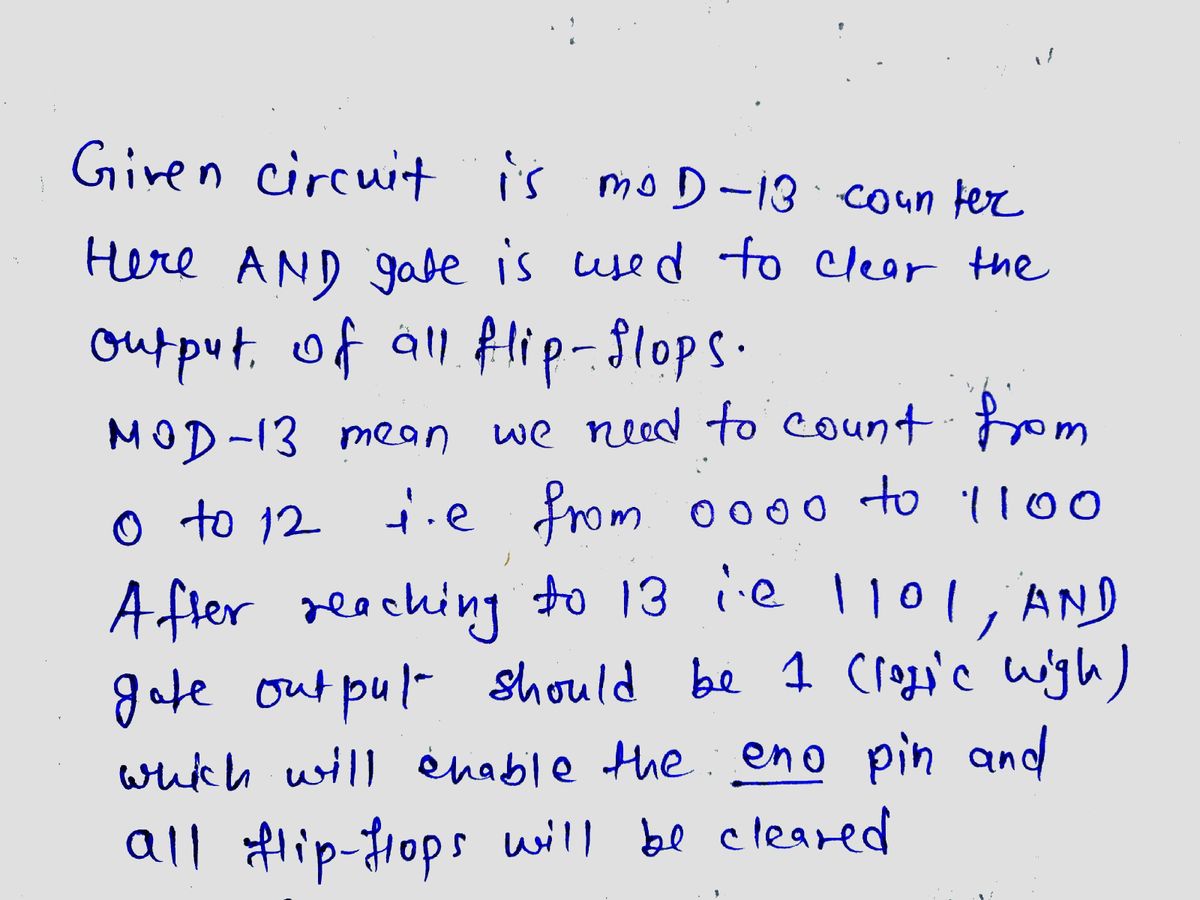 Given circuit is MOD-13 counter
Here AND gate is used to clear the
output of all flip-flops.
MOD-13 mean we need to count from
0 to 12 i.e from 0000 to 1100
After reaching to 13 i.e 1101, AND
gate output should be 1 (logic high)
which will enable the eno pin and
all flip-flops will be cleared